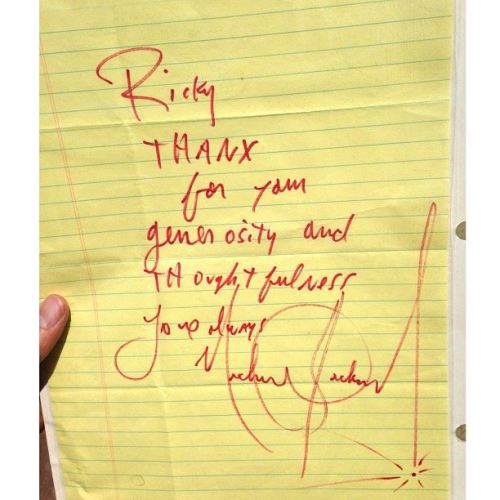 Ricky
THANX
for your
generosity and
THoughtfulness
Yours always
Michael Jackson